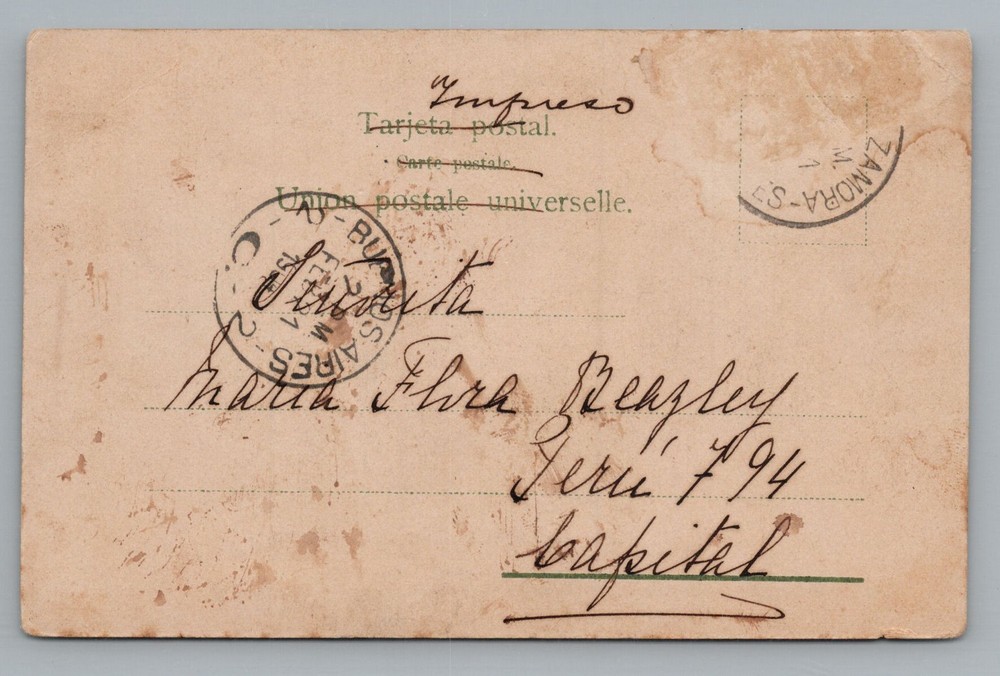 Impreso
Tarjeta postal.
Carte postale.
Union postale universelle.
ZAMORA-S
M.
1
BUENOS AIRES
2
C.
FE
M
1
Señorita
Maria Flora Beazley
Perú 794
Capital